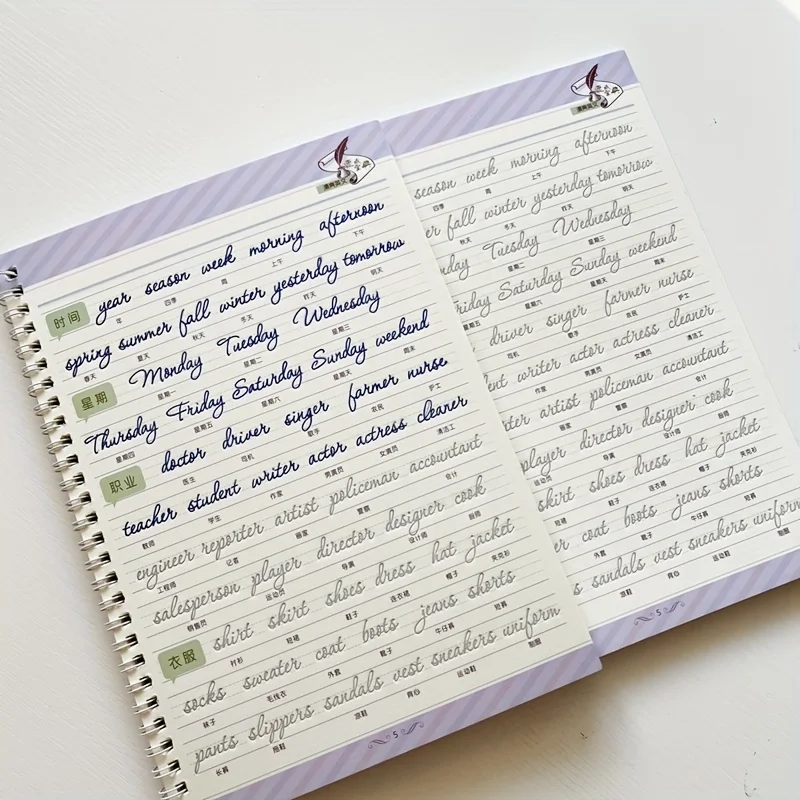 漫爽英文
year season week morning afternoon
时间 年 四季 周 上午 下午
spring summer fall winter yesterday tomorrow
春天 夏天 秋天 冬天 昨天 明天
Monday Tuesday Wednesday
星期 星期一 星期二 星期三
Thursday Friday Saturday Sunday weekend
星期四 星期五 星期六 星期天 周末
doctor driver singer farmer nurse
职业 医生 司机 歌手 农民 护士
teacher student writer actor actress cleaner
教师 学生 作家 男演员 女演员 清洁工
engineer reporter artist policeman accountant
工程师 记者 画家 警察 会计
salesperson player director designer cook
销售员 运动员 导演 设计师 厨师
shirt skirt shoes dress hat jacket
衣服 衬衫 短裙 鞋子 连衣裙 帽子 夹克衫
socks sweater coat boots jeans shorts
袜子 毛线衣 外套 靴子 牛仔裤 短裤
pants slippers sandals vest sneakers uniform
长裤 拖鞋 凉鞋 背心 运动鞋 制服
5
season week morning afternoon
四季 周 上午 下午
fall winter yesterday tomorrow
秋天 冬天 昨天 明天
Tuesday Wednesday
星期二 星期三
Friday Saturday Sunday weekend
星期五 星期六 星期天 周末
driver singer farmer nurse
司机 歌手 农民 护士
writer actor actress cleaner
作家 男演员 女演员 清洁工
artist policeman accountant
画家 警察 会计
player director designer cook
导演 设计师 厨师
skirt shoes dress hat jacket
短裙 鞋子 连衣裙 帽子 夹克衫
coat boots jeans shorts
外套 靴子 牛仔裤 短裤
sandals vest sneakers uniform
凉鞋 背心 运动鞋 制服
5